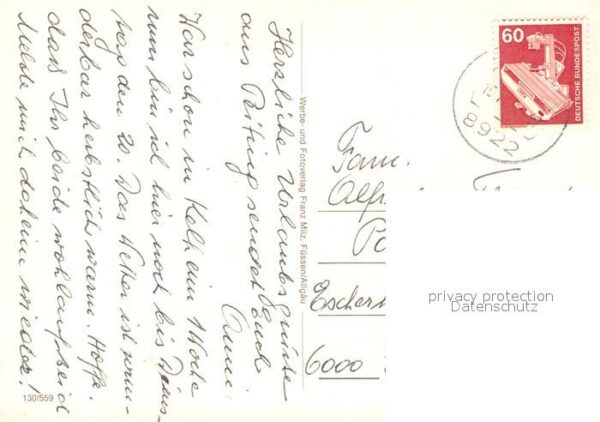 Herzliche Urlaubsgrüße
aus Peiting sendet Euch
Anni
War schon in Kalk ein Woche
nun bin ich hier noch bis Diens-
tag den 20. Das Wetter ist wun-
derbar herbstlich warm. Hoffe
daß Ihr beide wohlauf seid
Melde mich daheim wieder!
Werbe- und Fotoverlag Franz Milz, Füssen/Allgäu
130/559
60
DEUTSCHE BUNDESPOST
8922
Fam.
Alf
Escher
6000
privacy protection
Datenschutz